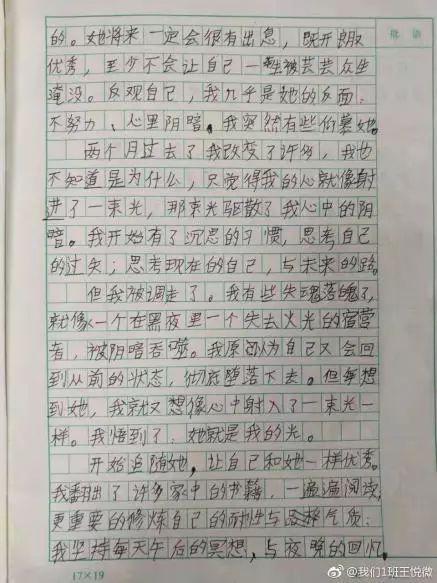 批语
的。她将来一定会很有出息，既开朗又
优秀，至少不会让自己一生被芸芸众生
淹没。反观自己，我几乎是她的反面：
不努力、心里阴暗。我突然有些仰慕她。
两个月过去了我改变了许多，我也
不知道是为什么，只觉得我的心就像射
进了一束光，那束光驱散了我心中的阴
暗。我开始有了沉思的习惯，思考自己
的过失；思考现在的自己，与未来的路。
但我被调走了。我有些失魂落魄了，
就像一个在黑夜里一个失去火光的宿营
者，被阴暗吞噬。我原以为自己又会回
到从前的状态，彻底堕落下去。但每想
到她，我就又想像心中射入了一束光一
样。我悟到了：她就是我的光。
开始追随她，让自己和她一样优秀。
我翻出了许多家中的书籍，一遍遍阅读，
更重要的修炼自己的耐性与气质：
我坚持每天午后的冥想，与夜晚的回忆，
17×19
@我们1班王悦微